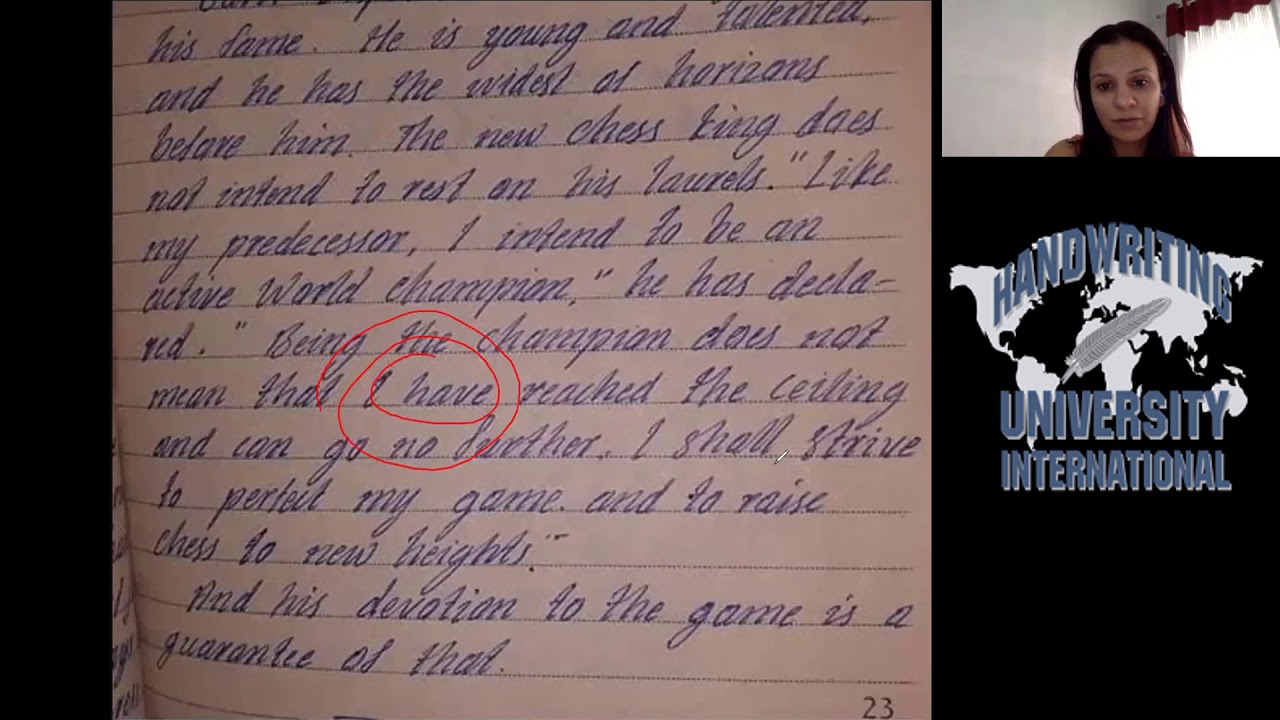 his fame. He is young and talented,
and he has the widest of horizons
before him. The new chess king does
not intend to rest on his laurels. "Like
my predecessor, I intend to be an
active World champion," he has decla-
red. "Being the champion does not
mean that I have reached the ceiling
and can go no further. I shall strive
to perfect my game and to raise
chess to new heights."
And his devotion to the game is a
guarantee of that.
23
HANDWRITING
UNIVERSITY
INTERNATIONAL